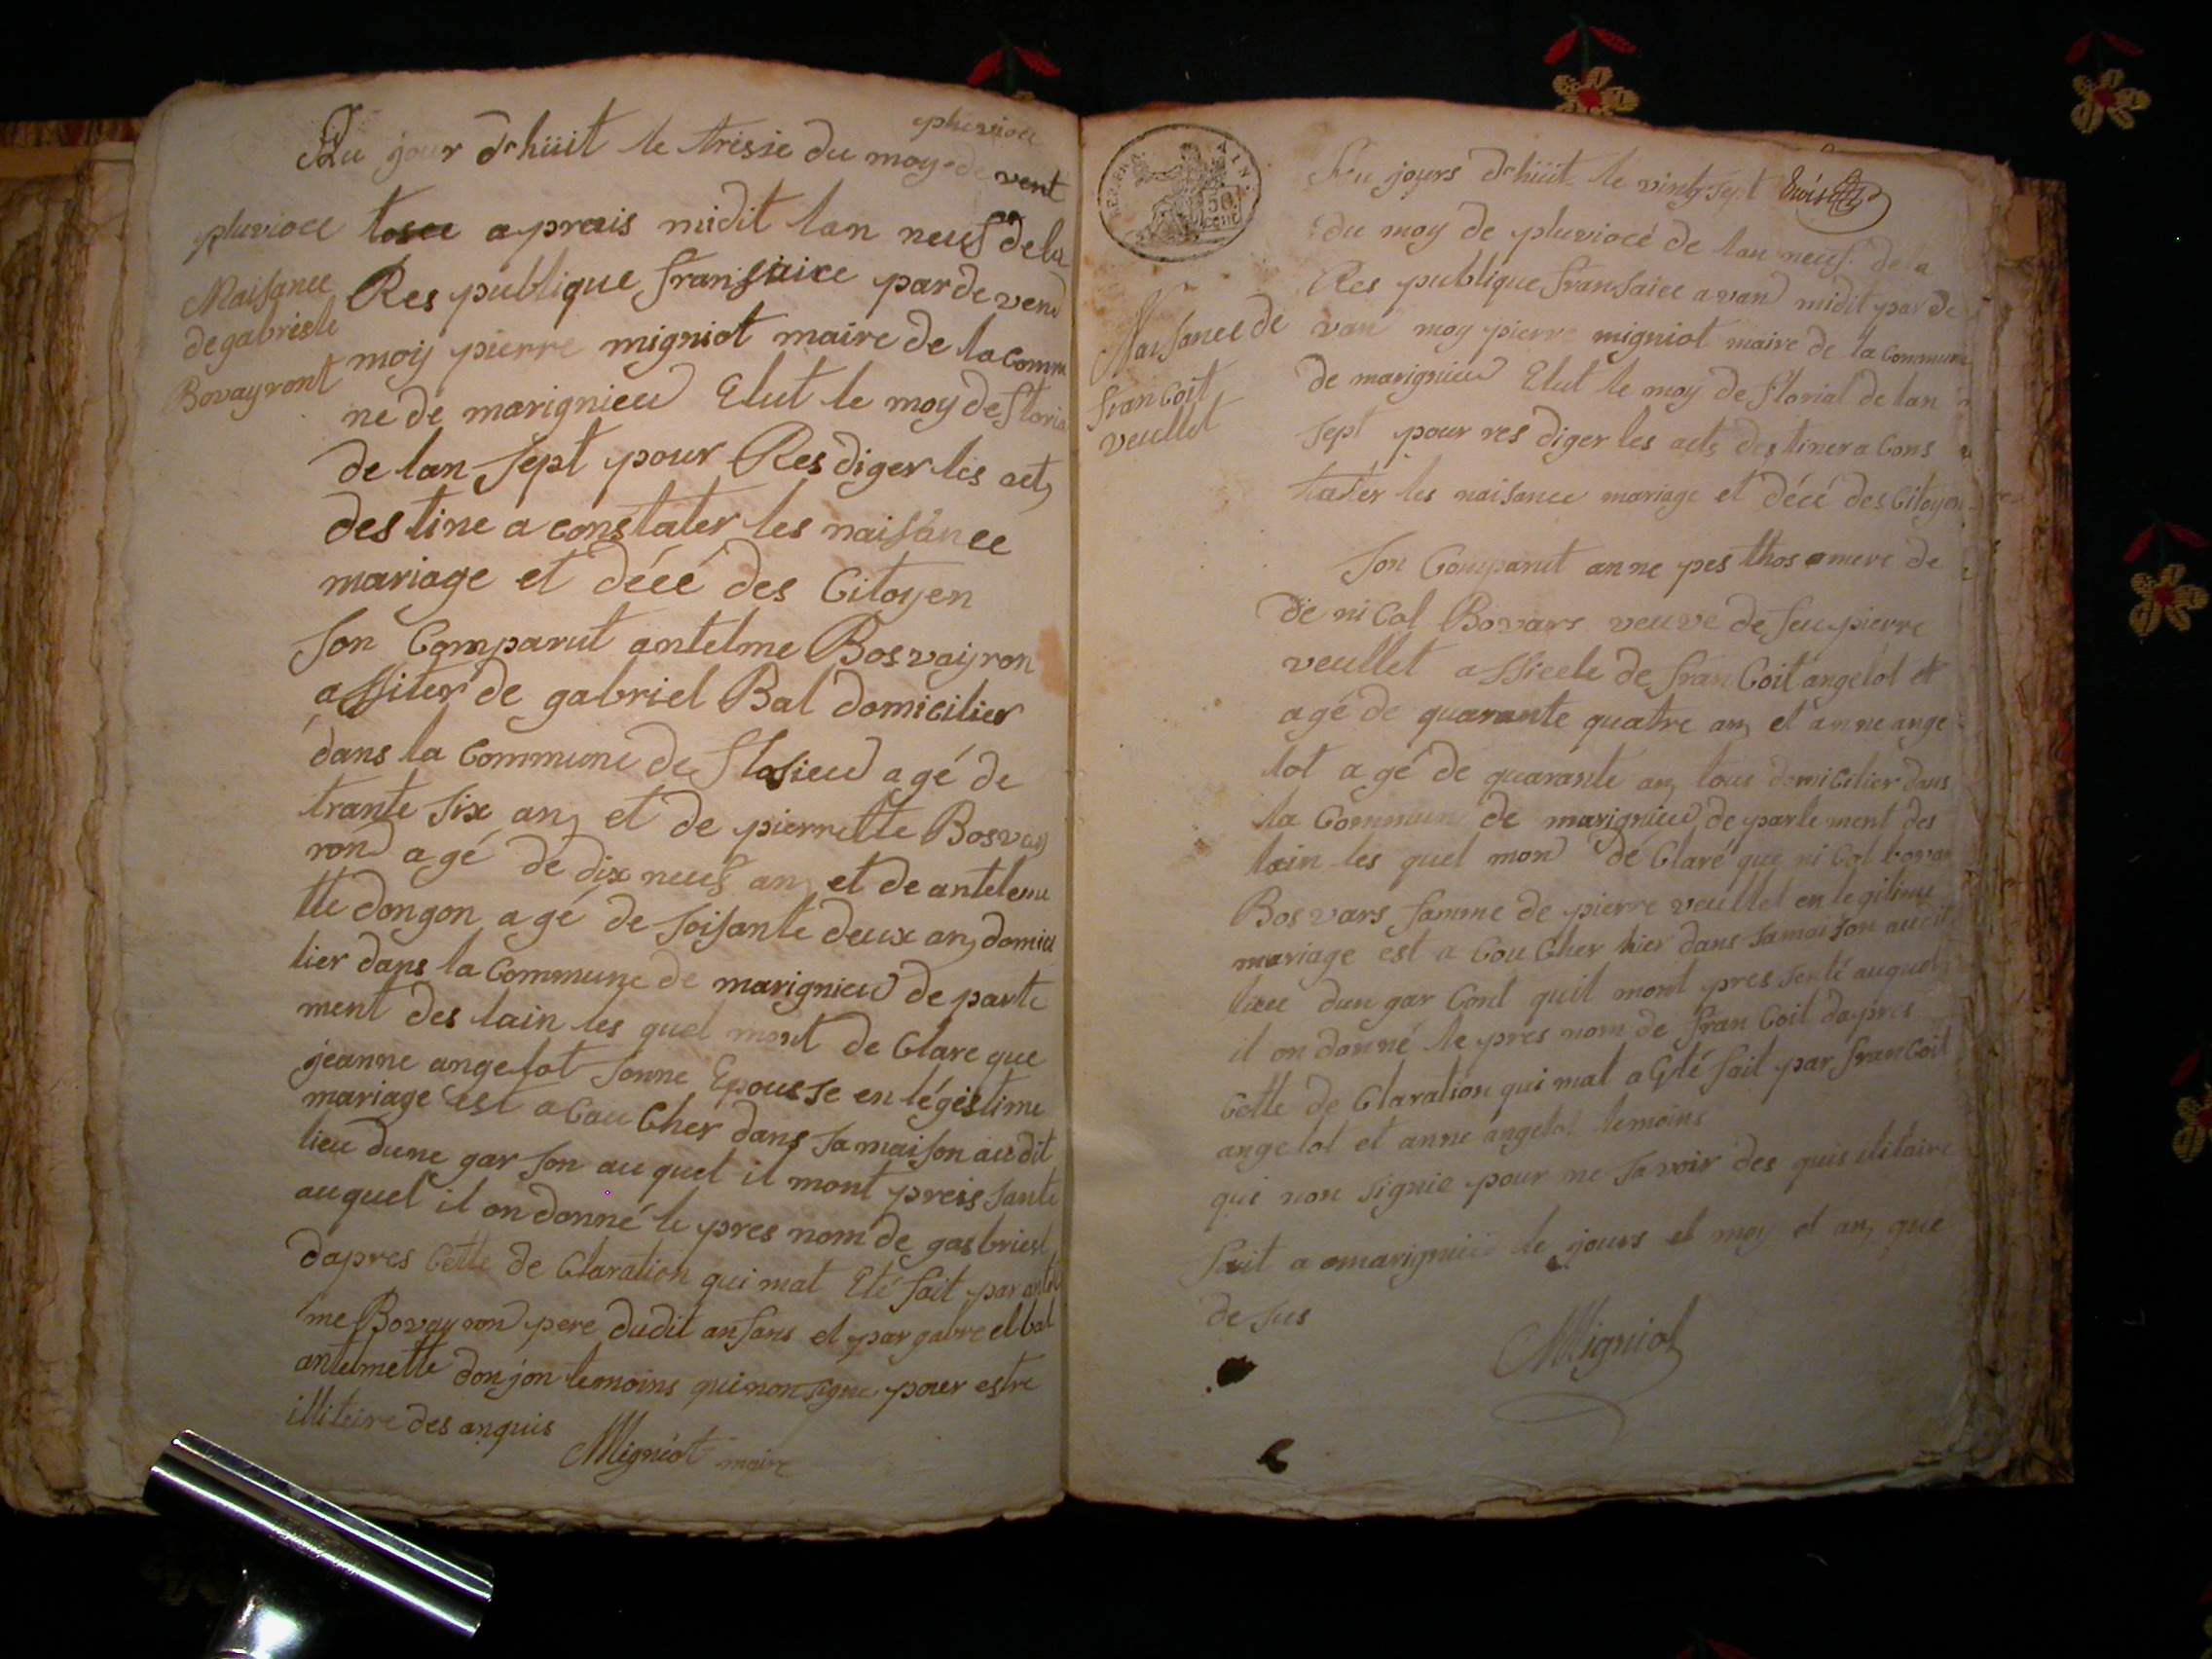 pluvioce
Au jour d'huit le tresie du moy de vent
pluvioce
tosce aprais midit lan neuf dela
Naisance
de gabriele
Bovayront
Res publique fransaice par de vend
moy pierre migniot maire de la comm
ne de marignieu Elut le moy de floria
de lan sept pour Res diger les act
destine a constater les naisance
mariage et décé des Citoyen
Son Comparut antelme Bosvayron
assiter de gabriel Bal domicilier
dans la Commune de flasieu agé de
trante six an et de pierrette Bosvay
rond agé de dix neuf an et de anteleme
tte dongon agé de soisante deux an domici
lier dans la Commune de marignieu de parte
ment des lain les quel mont de Clare que
jeanne angelot sonne Epousse en légistime
mariage est a Cou Cher dans sa maison audit
lieu dune gar son au quel il mont preis sante
auquel il on donné le pres nom de gasbriel
dapres Cette de Claration qui mat Eté fait par antel
me Bovayrond pere dudit anfans et par gabreel bal
antelmette donjon temoins qui non signe pour estre
illiteire des anquis
Migniot maire
REP. FRA. AIN.
50 CENT
Au jours d'huit le vingt sept
du moy de pluviocé de lan neuf de la
Res publique fransaice avand midit par de
Naisance de
francoit
veullet
van moy pierre migniot maire de la Commune
de marignieu Elut le moy de florial de lan
sept pour res diger les acts destiner a Cons
tater les naisance mariage et décé des Citoyen
Son Comparut anne pes thos amere de
de ni Col Bovars veuve de feu pierre
veullet assicele de fran Coit angelot et
agé de quarante quatre an et anne ange
lot agé de quarante an tous domicilier dans
la Commune de marignieu de partement des
lain les quel mond de Claré que ni Col bovar
Bosvars famme de pierre veullet en legitime
mariage est a Cou Cher hier dans sa maison audit
lieu dun gar Cont quil mont pres senté auquel
il on donné le pres nom de fran Coit dapres
Cette de Claration qui mat a Eté fait par fran Coit
angelot et anne angelot temoins
qui non signie pour ne savoir des quis elitaire
fait a marignieu le jours et moy et an que
de sus
Migniot